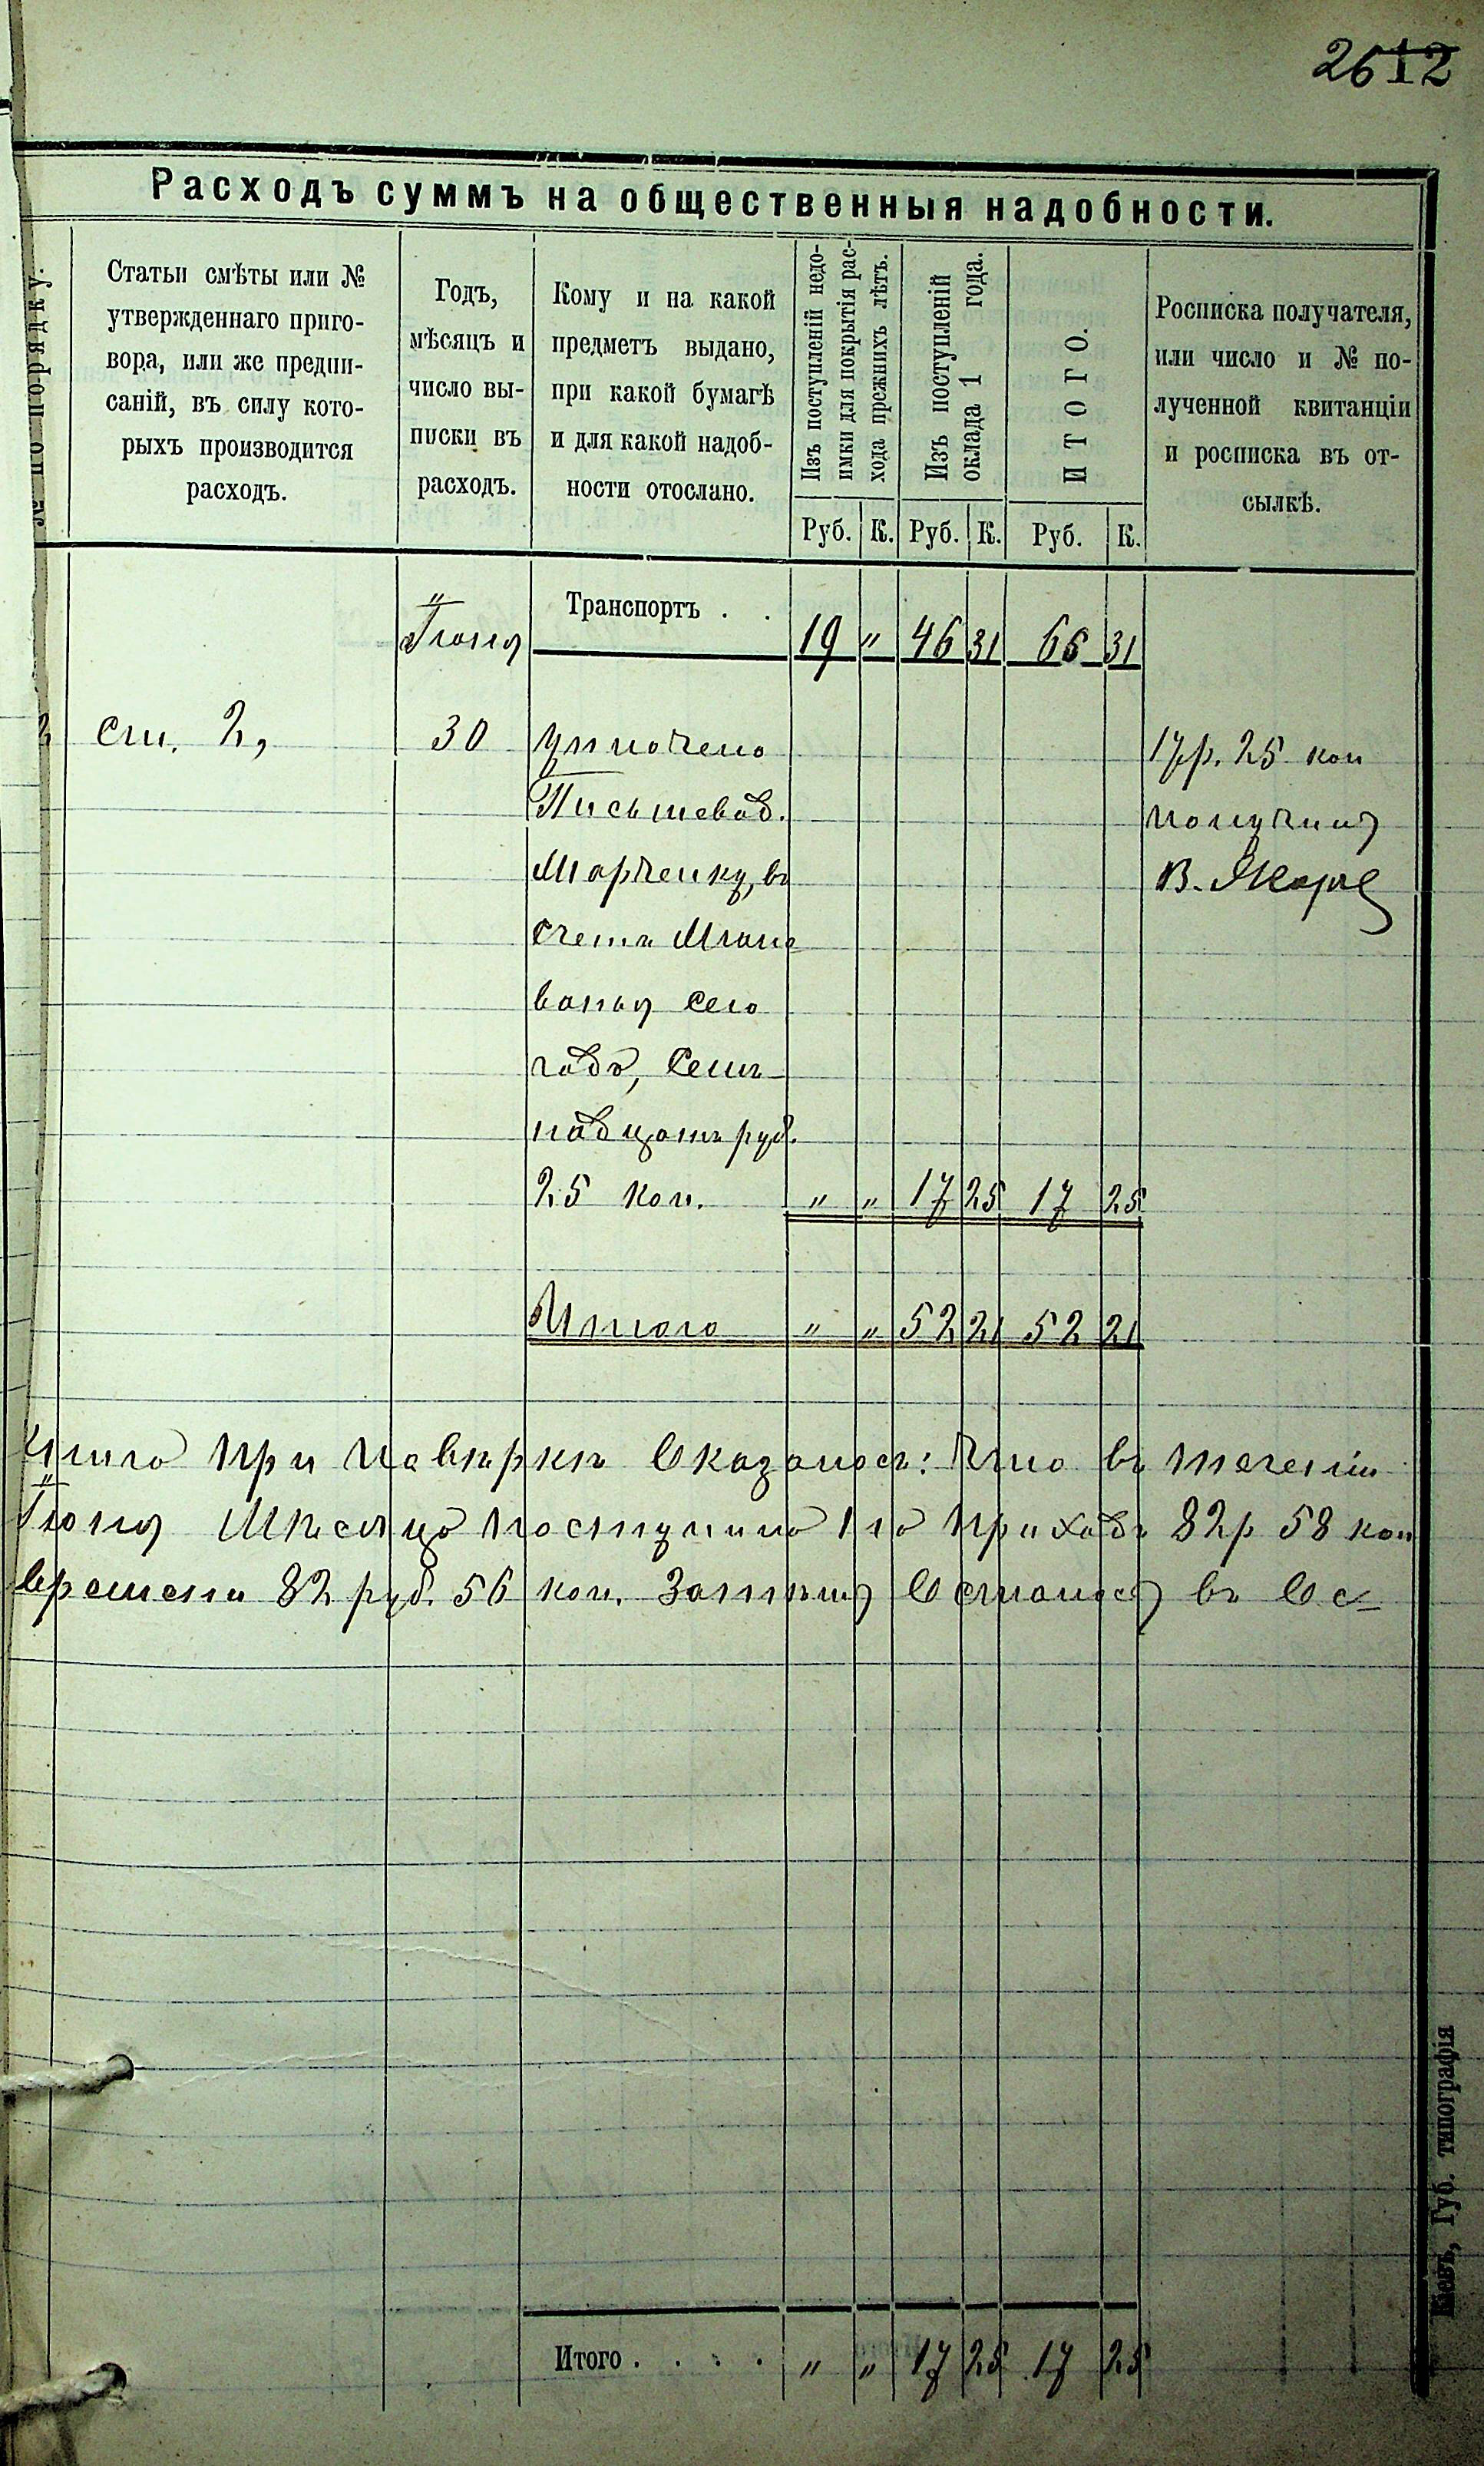 26 12
Расходъ суммъ на общественныя надобности.
№ по порядку.
Статьи смѣты или №
утвержденнаго приго-
вора, или же предпи-
саній, въ силу кото-
рыхъ производится
расходъ.
Годъ,
мѣсяцъ и
число вы-
писки въ
расходъ.
Кому и на какой
предметъ выдано,
при какой бумагѣ
и для какой надоб-
ности отослано.
Изъ поступленій недо-
имки для покрытія рас-
хода прежнихъ лѣтъ.
Изъ поступленій
оклада 1 года.
ИТОГО.
Росписка получателя,
или число и № по-
лученной квитанціи
и росписка въ от-
сылкѣ.
Руб. К. Руб. К. Руб. К.
Іюня Транспортъ . . 19 " 46 31 65 31
2 ст. 2, 30 уплочено 17р. 25 коп
Письмовод. получилъ
Марченку, въ В.
счетъ жало
ванья сего
года, семъ
надцать руб.
25 коп. " " 17 25 17 25
Итого " " 52 21 52 21
Итого при поверкѣ оказалось: что въ течении
Іюня мѣсяца поступило по приходу 82р 58 коп
времени 82 руб. 56 коп. затѣмъ осталось въ ос
Итого . . . . " " 17 25 17 25
Кіевъ, Губ. типографія